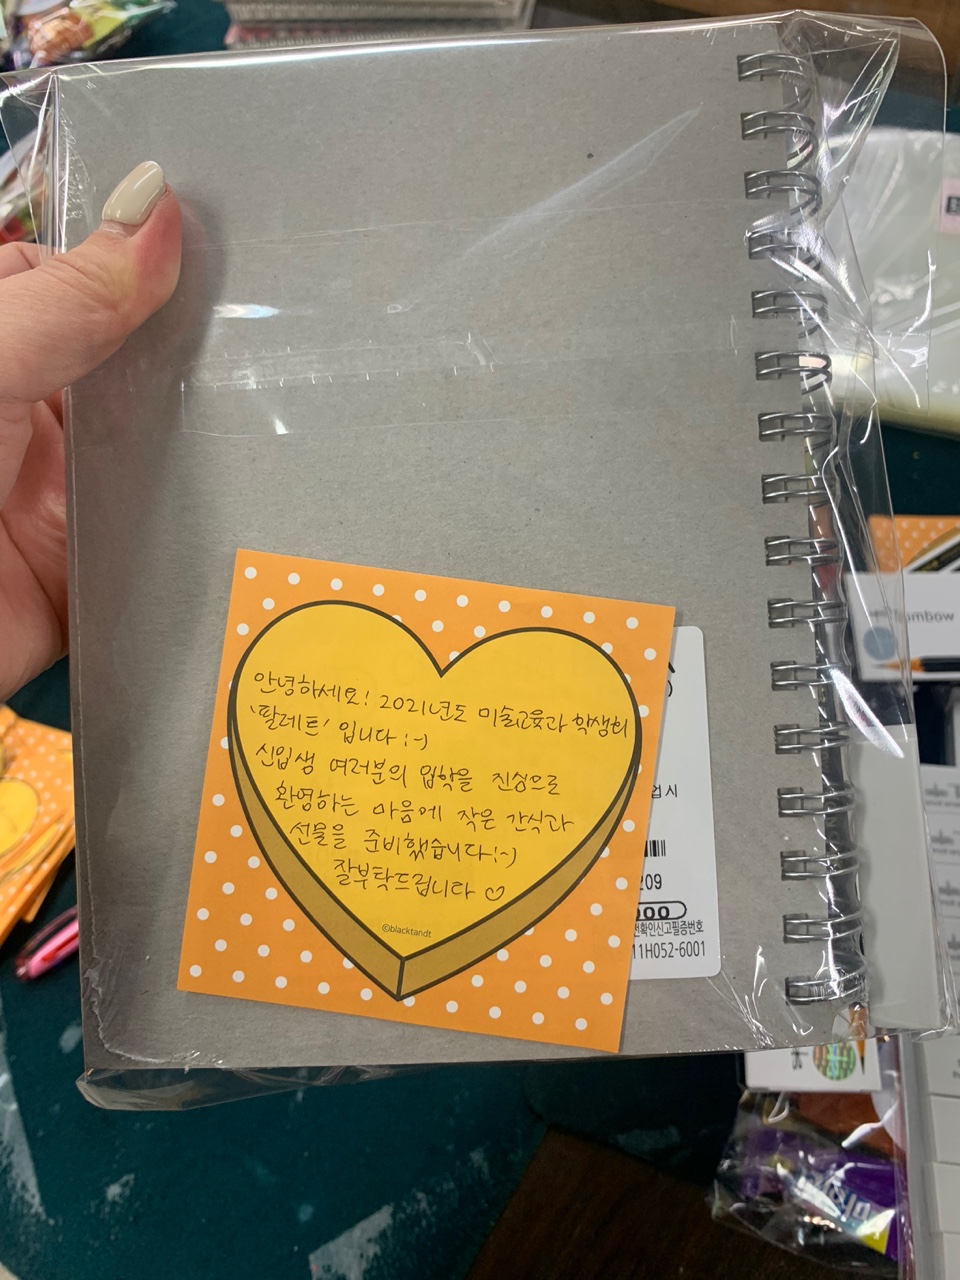 안녕하세요! 2021년도 미술교육과 학생회
'팔레트' 입니다 :-)
신입생 여러분의 입학을 진심으로
환영하는 마음에 작은 간식과
선물을 준비했습니다!:-)
잘부탁드립니다 ♡
©blacktandt
업시
209
전확인신고필증번호
11H052-6001